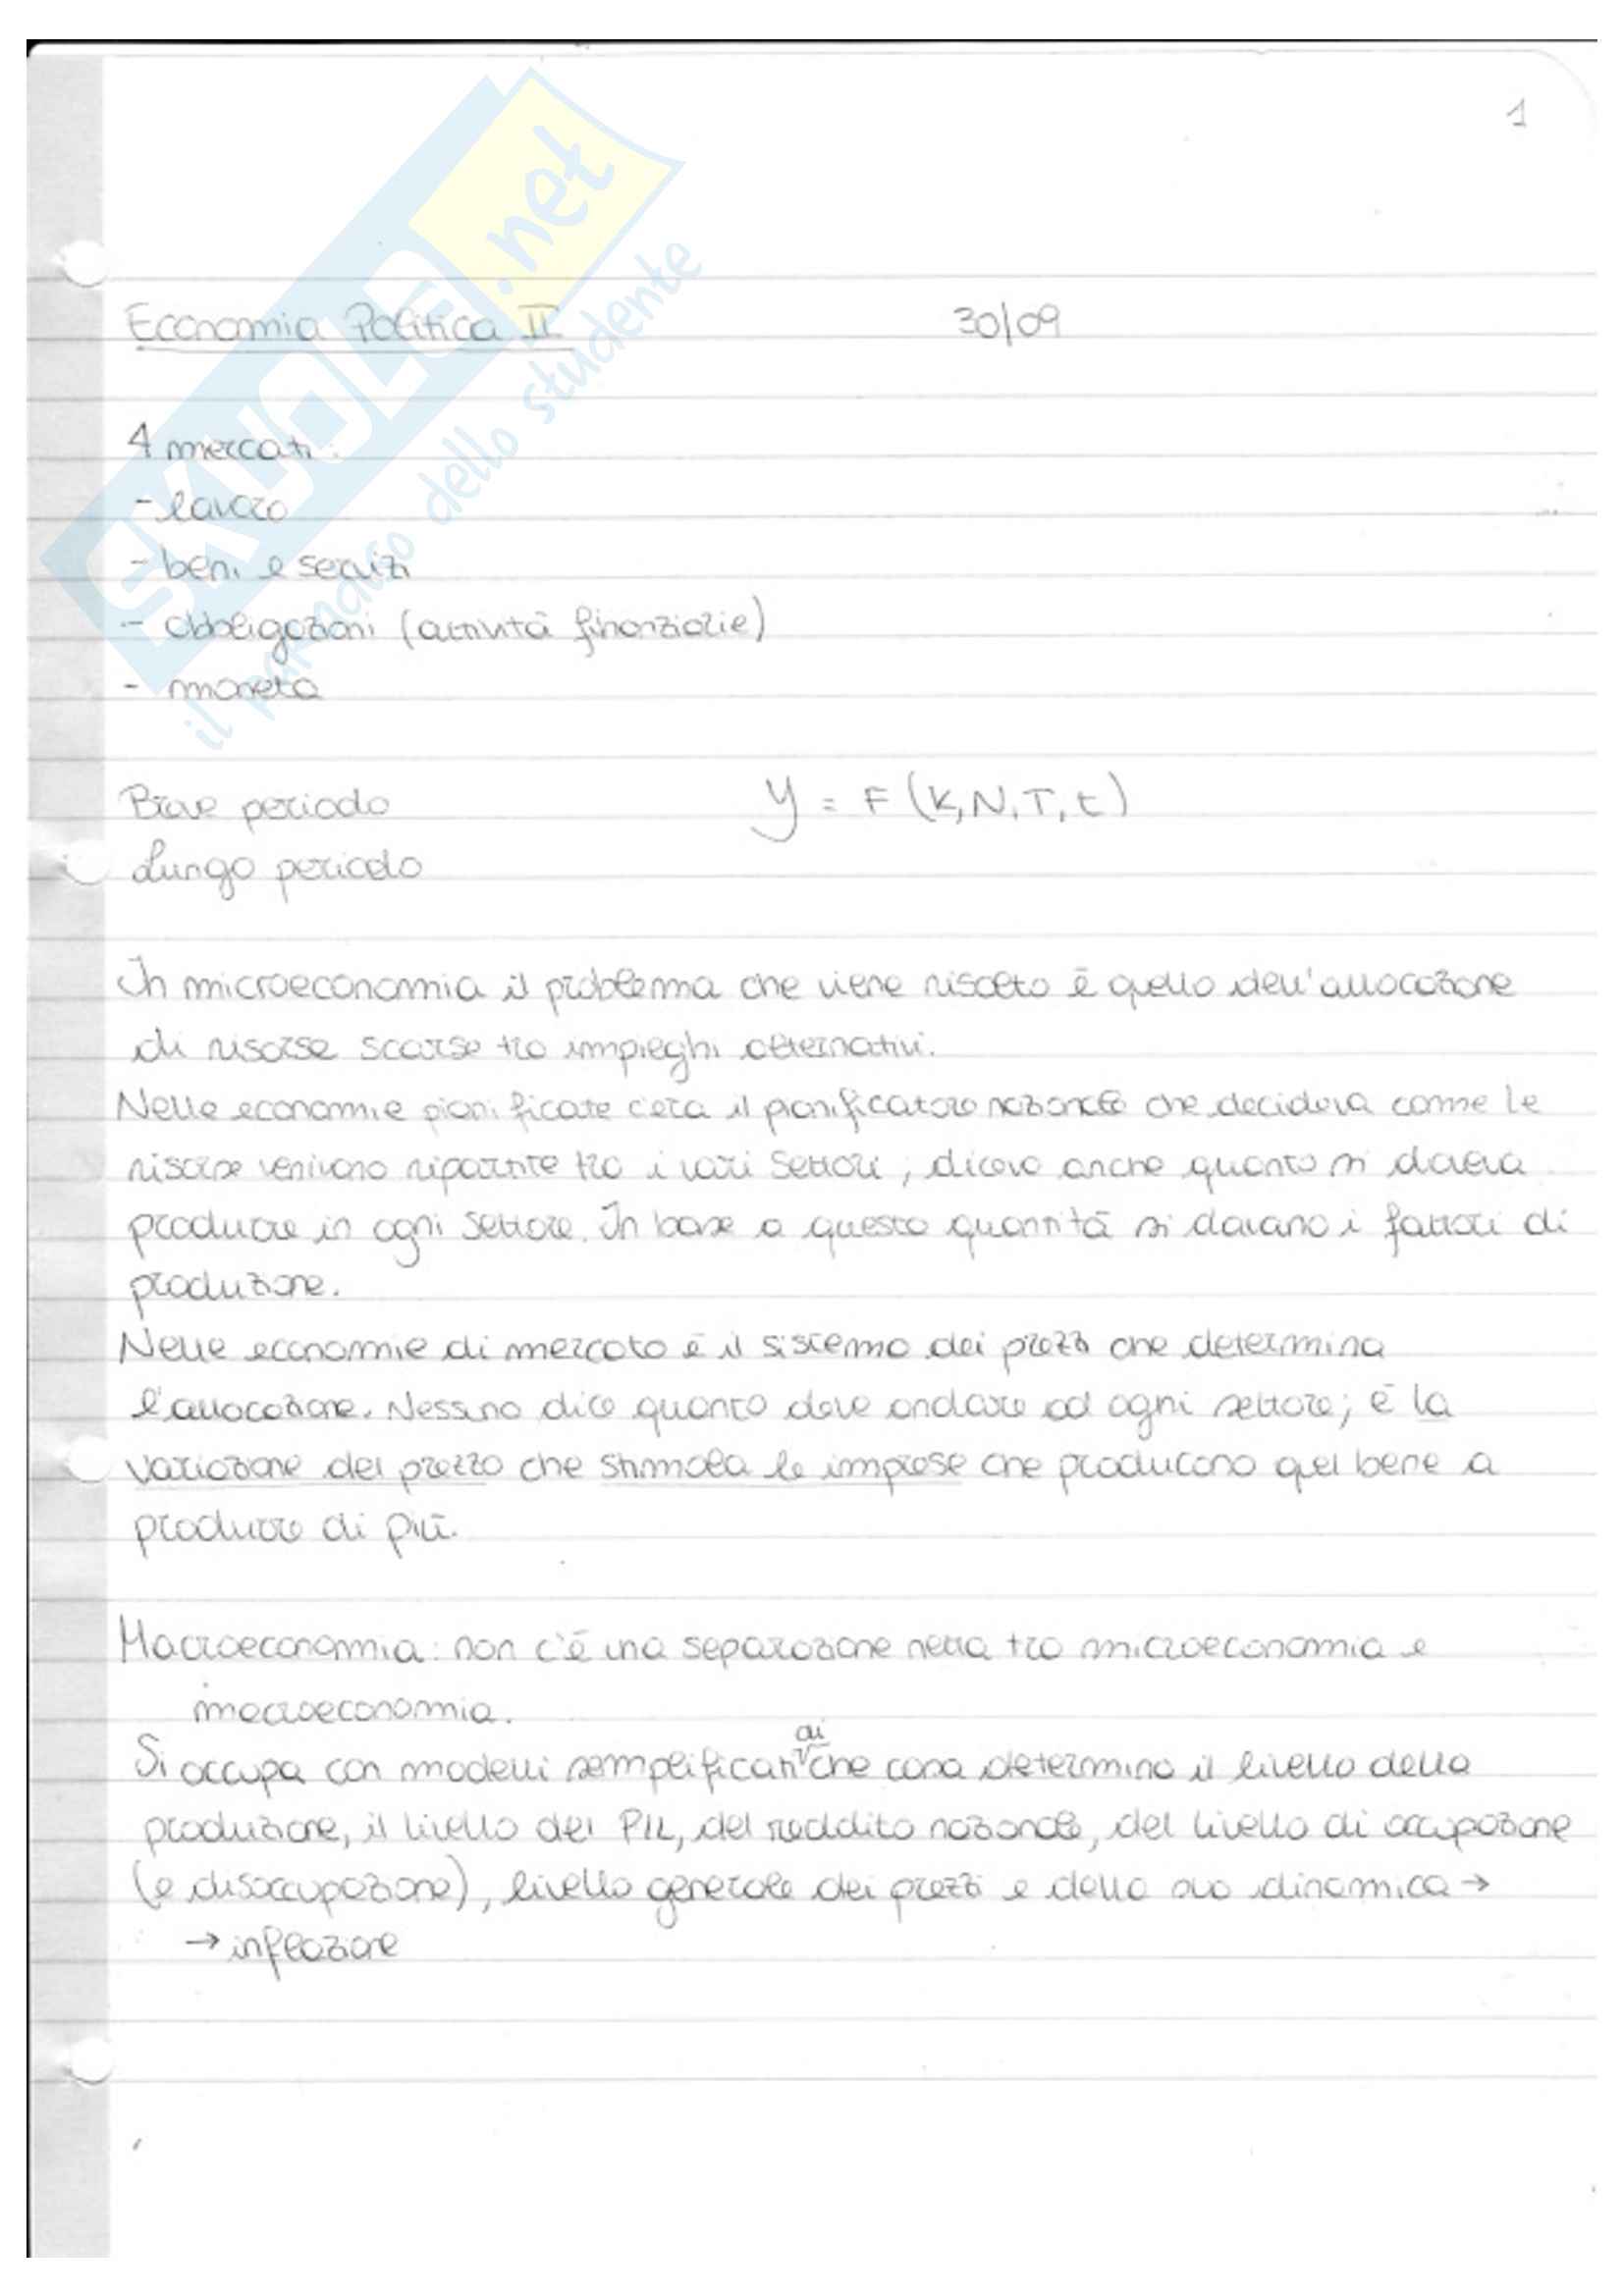 1
SKUOLA.net
il paradiso dello studente
Economia Politica II 30/09
4 mercati:
- lavoro
- beni e servizi
- obbligazioni (attività finanziarie)
- moneta
Breve periodo y = F (K, N, T, t)
Lungo periodo
In microeconomia il problema che viene risolto è quello dell'allocazione
di risorse scarse tra impieghi alternativi.
Nelle economie pianificate c'era il pianificatore nazionale che decideva come le
risorse venivano ripartite tra i vari settori, diceva anche quanto si doveva
produrre in ogni settore. In base a questa quantità si davano i fattori di
produzione.
Nelle economie di mercato è il sistema dei prezzi che determina
l'allocazione. Nessuno dice quanto deve andare ad ogni settore; è la
variazione del prezzo che stimola le imprese che producono quel bene a
produrre di più.
Macroeconomia: non c'è una separazione netta tra microeconomia e
macroeconomia.
Si occupa con modelli semplificati di che cosa determina il livello della
produzione, il livello del PIL, del reddito nazionale, del livello di occupazione
(e disoccupazione), livello generale dei prezzi e della sua dinamica →
→ inflazione